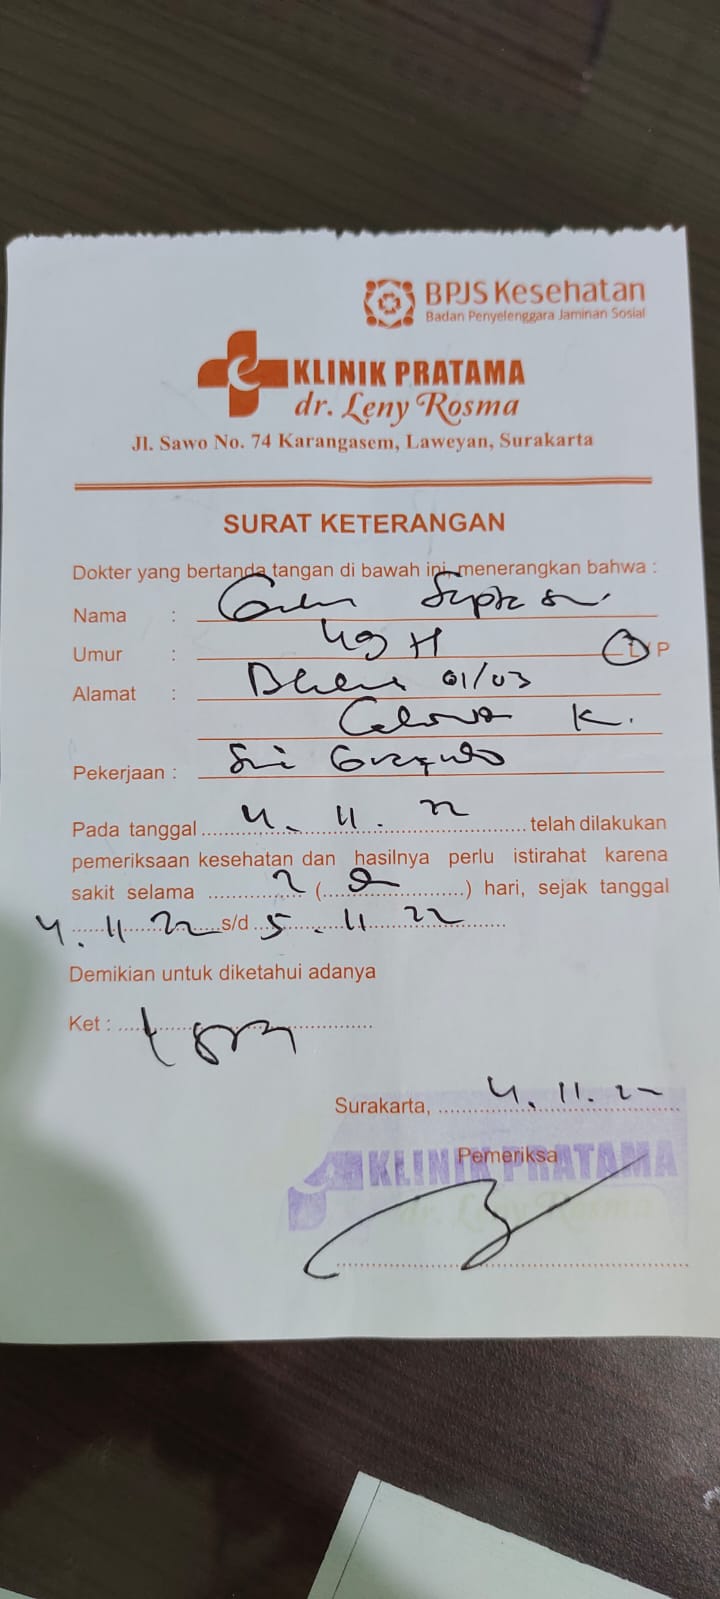 BPJS Kesehatan
Badan Penyelenggara Jaminan Sosial
KLINIK PRATAMA
dr. Leny Rosma
Jl. Sawo No. 74 Karangasem, Laweyan, Surakarta
SURAT KETERANGAN
Dokter yang bertanda tangan di bawah ini menerangkan bahwa :
Nama :
Umur : 49 L / P
Alamat : 01/03
K.
Pekerjaan :
Pada tanggal 4. 11. 22 telah dilakukan
pemeriksaan kesehatan dan hasilnya perlu istirahat karena
sakit selama 2 (........) hari, sejak tanggal
4. 11 22 s/d 5. 11 22
Demikian untuk diketahui adanya
Ket :
Surakarta, 4. 11. 22
Pemeriksa
KLINIK PRATAMA
dr. Leny Rosma